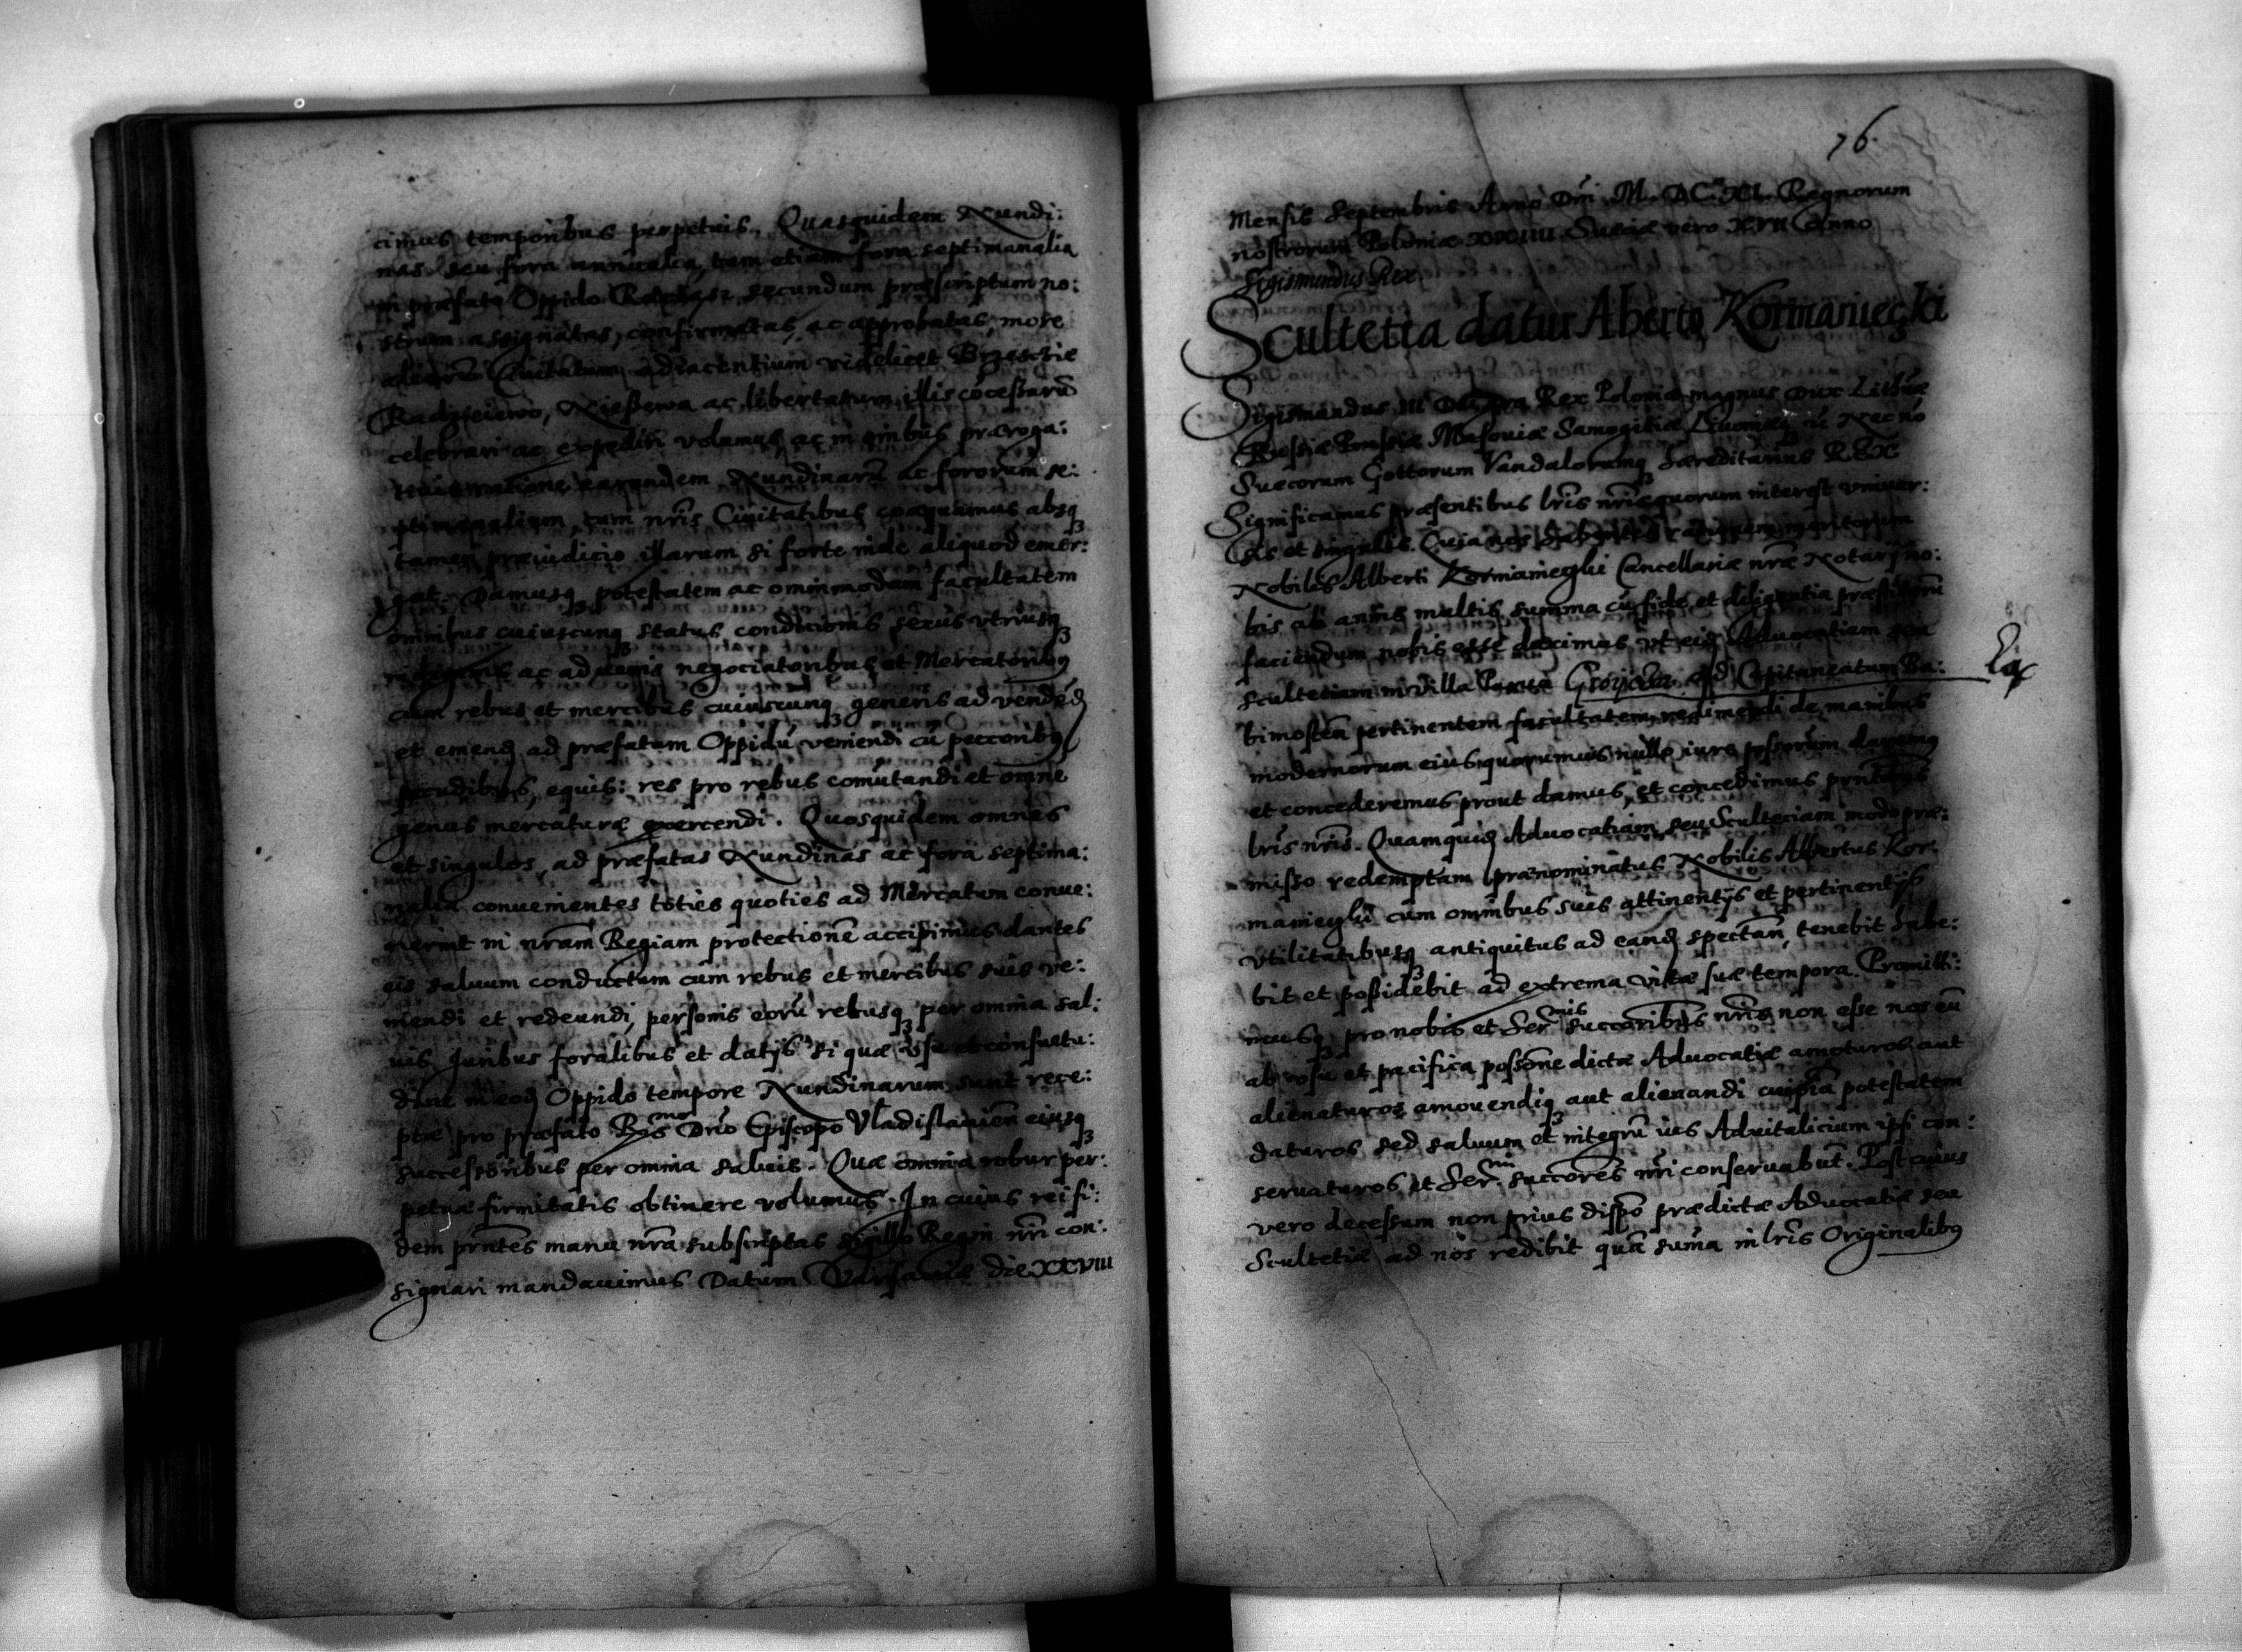 cimus temporibus perpetuis. Quasquidem Nundi:
nas seu fora annualia, tam etiam fora septimanalia
in præfato Oppido secundum præscriptum no:
strum assignatas, confirmatas, ac approbatas, more
aliarū Ciuitatum adiacentium videlicet Brzesctie
Radzieiewo, Nießewa ac libertatum illis cōceßarū
celebrari ac expediri volumus, ac in oīnibus præroga:
tiuis ratione earundem Nundinarū ac fororum se:
ptimanalium, cum nrīs Ciuitatibus coæquamus absq3
tamen præiudicio illarum si forte inde aliquod emer:
gat. Damusq3 potestatem ac omnimodam facultatem
omnibus cuiuscunq3 status, conditionis sexus vtriusq3
indigenis ac aduenis negociatoribus et Mercatoribq
cum rebus et mercibus cuiuscunq3 generis ad vendēd
et emend ad præfatum Oppidū veniendi cū peccoribq
pecudibus, equis: res pro rebus comutandi et omne
genus mercaturæ exercendi. Quosquidem omnes
et singulos, ad præfatas Nundinas ac fora septima:
nalia conuenientes toties quoties ad Mercatum conue:
nerint in nrām Regiam protectionē accipimus dantes
eis saluum conductum cum rebus et mercibus suis ve:
niendi et redeundi, personis eorū rebusq3 per omnia sal:
uis Juribus foralibus et datijs si quæ vsu et consuetu:
dine in eod Oppido tempore Nundinarum sunt rece:
ptæ pro præfato Rndīssmo Dnō Episcopo Vladislauien eiusq3
successoribus per omnia saluis. Quæ omnia robur per:
petuæ firmitatis obtinere volumus. In cuius rei fi:
dem prntēs manu nrā subscriptas sigillo Regni nrī con:
signari mandauimus Datum Varsauiæ die XXVIII
76.
Mensis Septembris Anno Dnī M. DC. XI. Regnorum
nostrorum Poloniæ XXIIII Sueciæ vero XVII Anno
Sigismundus Rex
Scultetia datur Alberto Kormanieczki
Sigismundus III Dei gra Rex Poloniæ magnus Dux Lithuæ
Russiæ Prussiæ Masouiæ Samogitiæ Liuoniæq3 &c Necnō
Suecorum Gottorum Vandalorumq3 hæreditarius REX
Significamus præsentibus lrīs nrīs quorum interest vniuer:
sis et singulis. Quia nos habentes rationem meritorum
Nobilis Alberti Kormanieczki Cancellariæ nræ Notarij no:
bis ab annis multis summa cū fide et diligentia præstitorū
faciendum nobis esse duximus vt eid Aduocatiam seu
scultetiam in villa Parua Groijecka ad Capitaneatum Ra:
bimosten pertinentem facultatem redimendi de manibus
modernorum eius quorumuis nullo iure possorum daremq
et concederemus prout damus, et concedimus prntībus
lrīs nrīs. Quamquid Aduocatiam seu Scultetiam modo præ:
misso redemptam prænominatus Nobilis Albertus Kor:
manieczki cum omnibus suis attinentijs et pertinentijs
vtilitatibusq3 antiquitus ad eand spectan, tenebit habe:
bit et poßidebit ad extrema vitæ suæ tempora. Promitti:
musq3 pro nobis et Sermis succoribus nrīs non esse nos eū
ab vsu et pacifica possone dictæ Aduocatiæ amoturos aut
alienaturos amouendiq3 aut alienandi cuipiā potestatem
daturos sed saluum et integrū ius Aduitalicium ipsi con:
seruaturos et Sermi succores nrī conseruabunt. Post cuius
vero decessum non prius dispō prædictæ Aduocatiæ seu
Scultetiæ ad nos redibit quā suma in lrīs Originalibq